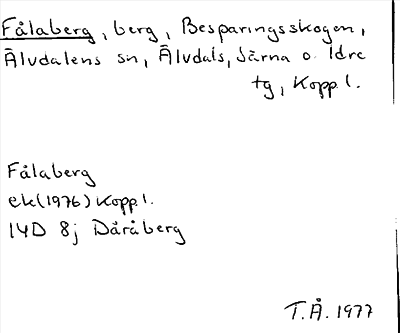 Fålaberg, berg, Besparingsskogen,
Älvdalens sn, Älvdals, Särna o. Idre
tg, Kopp l.
Fålaberg
ek(1976) Kopp l.
14D 8j Dåråberg
T.Å. 1977